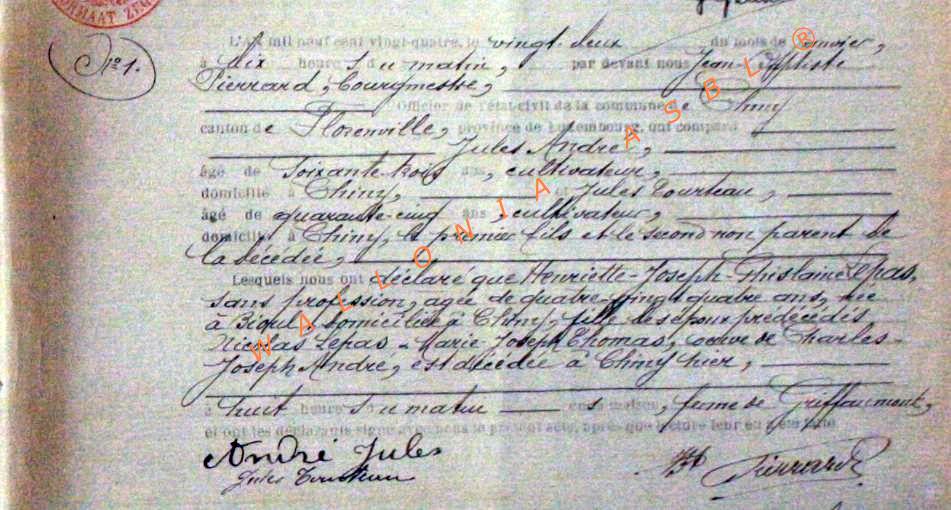 N° 1.
L'AN mil neuf cent vingt-quatre, le vingt-deux du mois de janvier,
à dix heures du matin, par devant nous Jean-Baptiste
Pierrard, bourgmestre,
Officier de l'état-civil de la commune de Chiny
canton de Florenville, province de Luxembourg, ont comparu
Jules André,
âgé de soixante-trois ans, cultivateur,
domicilié à Chiny, et Jules
âgé de quarante-cinq ans, cultivateur,
domicilié à Chiny, le premier fils et le second non parent de
la décédée,
Lesquels nous ont déclaré que Henriette-Joseph-Ghislaine Lepas,
sans profession, agée de quatre-vingt-quatre ans, née
à Bioul, domiciliée à Chiny, fille des époux prédécédés
Nicolas Lepas - Marie-Joseph Thomas, veuve de Charles-
Joseph André, est décédée à Chiny hier,
à huit heures du matin en sa maison, ferme de
et ont les déclarants signé avec nous le présent acte, après que lecture leur en a été faite
André Jules
Jules
Pierrard
WALLONIA ASBL ®